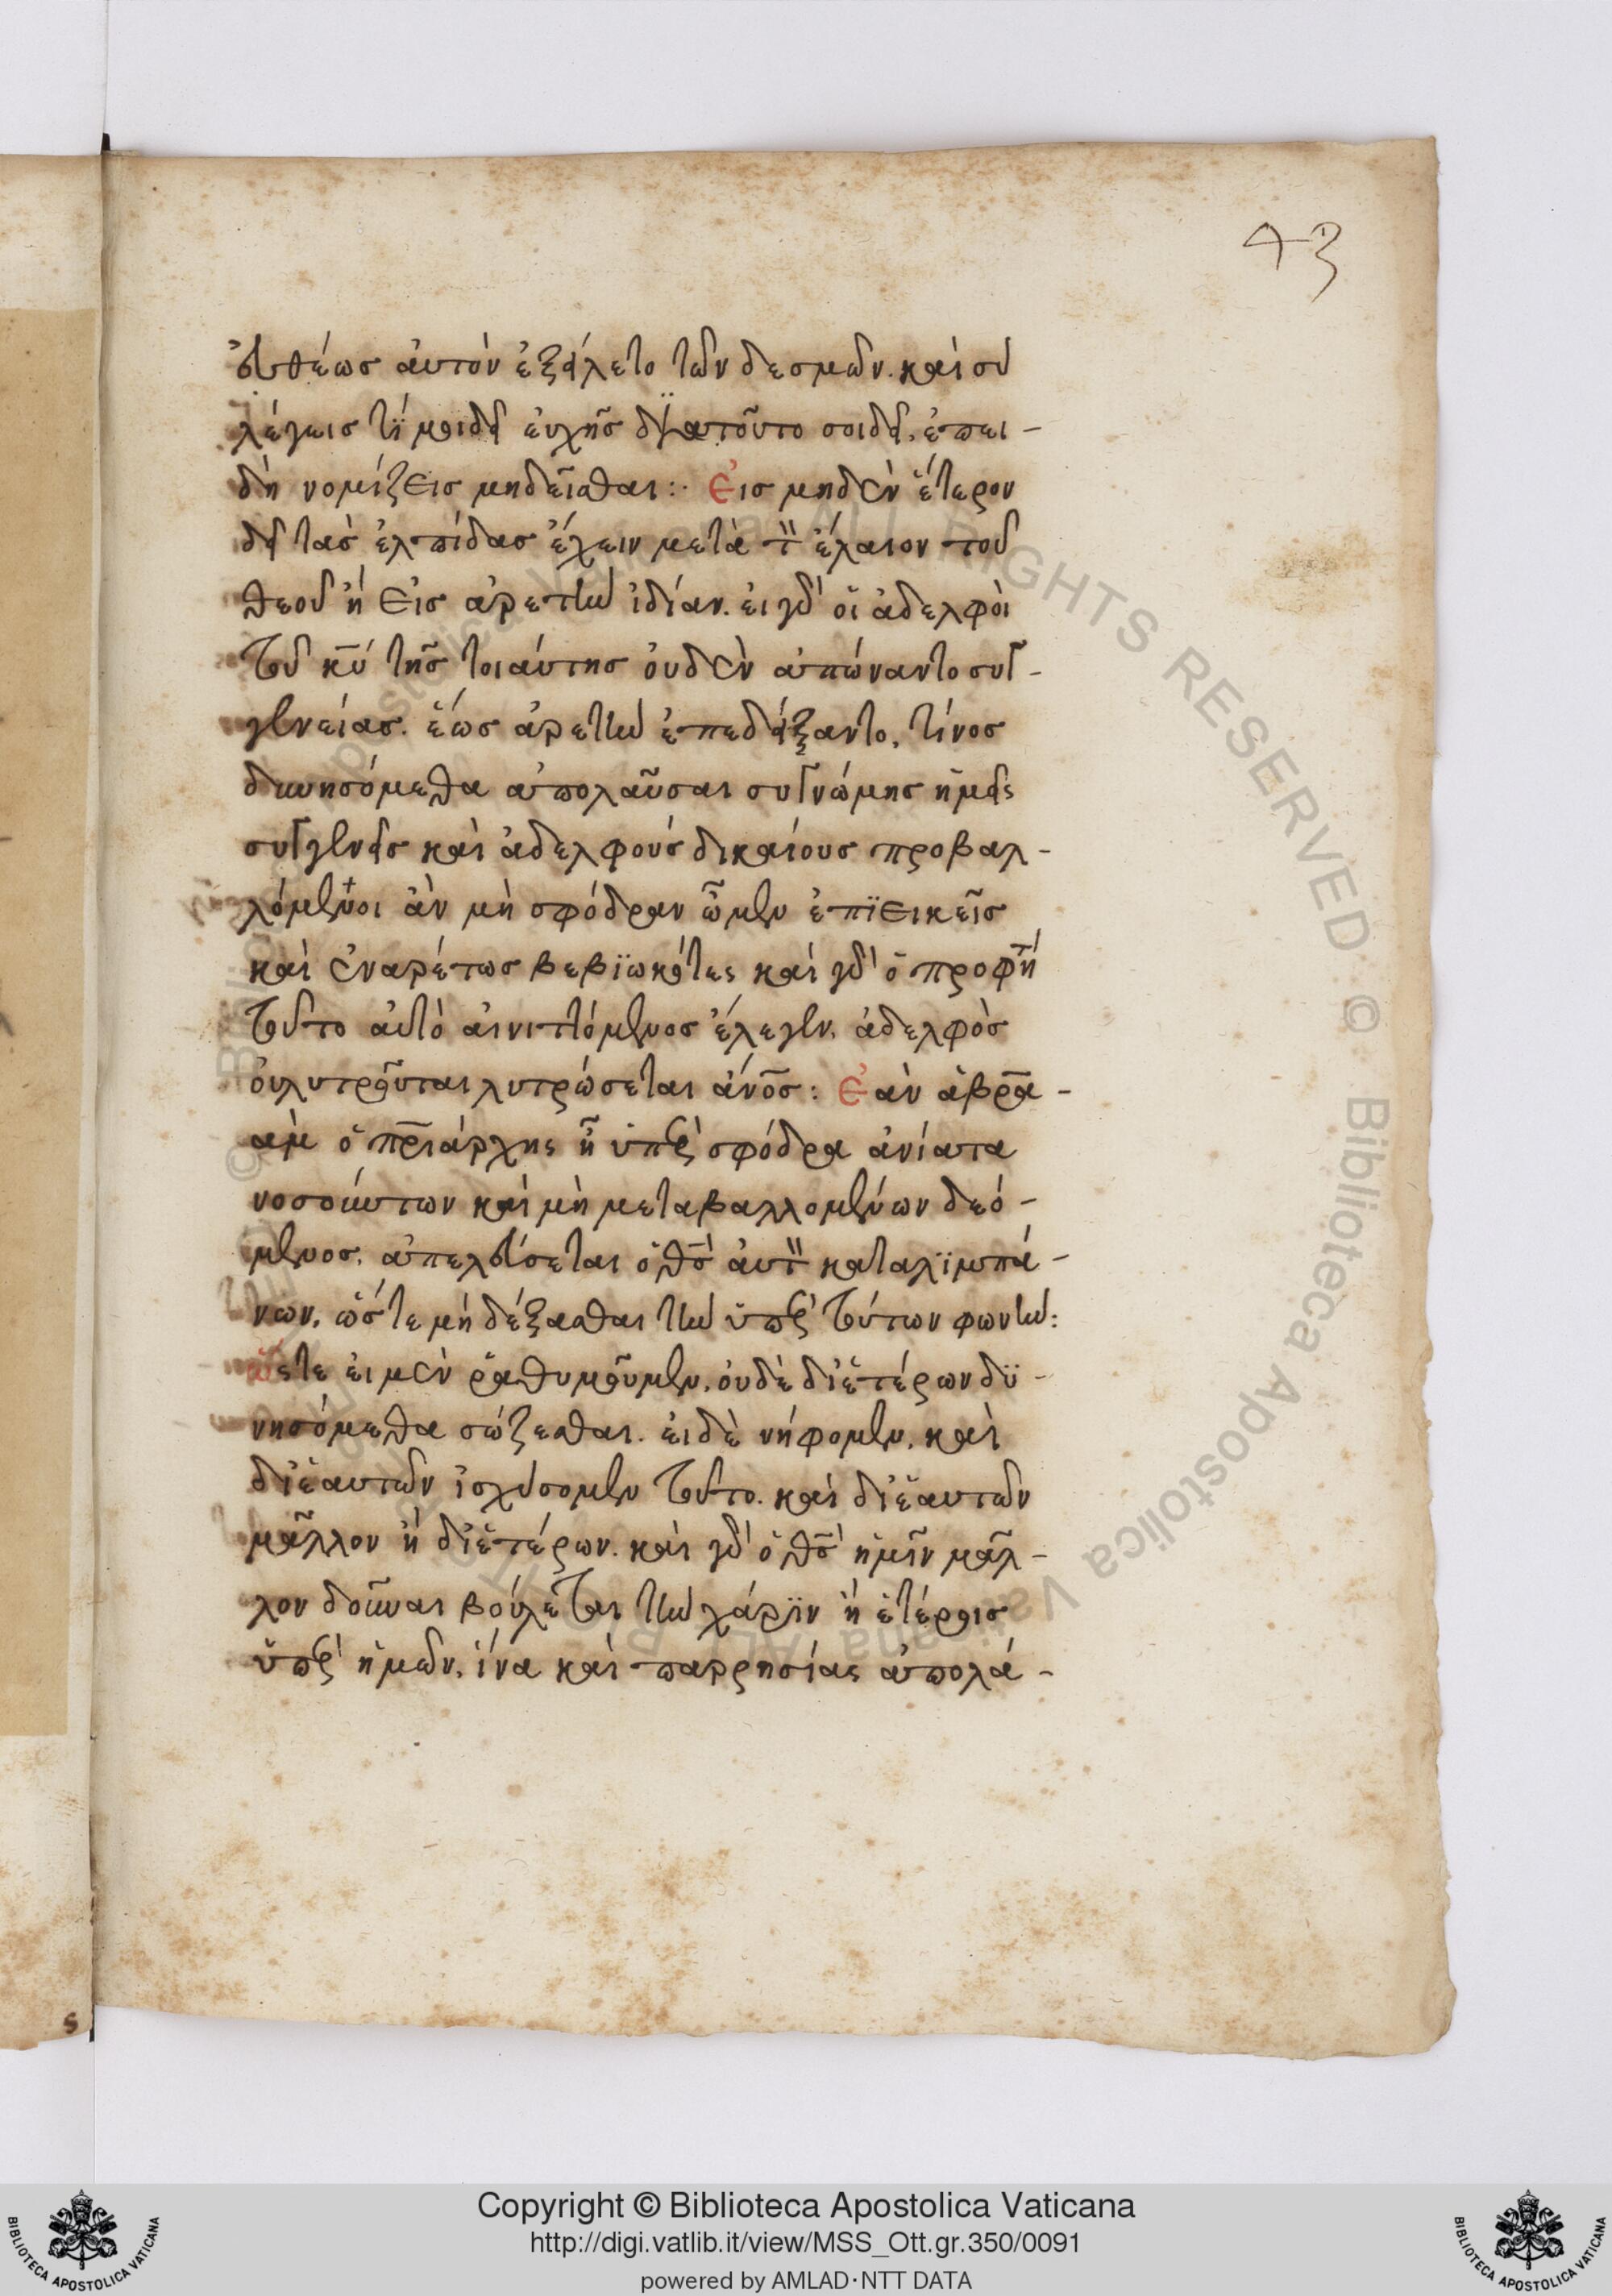 43
ἐυθέως ἀυτὸν ἐξείλετο τῶν δεσμῶν. καὶ σὺ
λέγεις τί μοι δεῖ ἐυχῆς διατοῦτο σοι δεῖ, ἐπει-
δὴ νομίζεις μηδεῖσθαι :· Εἰς μηδὲν ἕτερον
δεῖ τὰς ἐλπίδας ἔχειν μετὰ τὸν ἔλαιον τοῦ
θεοῦ ἢ εἰς ἀρετὴν ἰδίαν. εἰ γὰρ οἱ ἀδελφοὶ
τοῦ κυ τῆς τοιάυτης ὀυδὲν ἀπώναντο συγ-
γενείας. ἕως ἀρετὴν ἐπεδείξαντο, τίνος
δυνησόμεθα ἀπολαῦσαι συγνώμης ἡμεῖς
συγγενεῖς καὶ ἀδελφοὺς δικαίους προβαλ-
λόμενοι ἂν μὴ σφόδραν ὦμεν ἐπϊεικεῖς
καὶ ἐναρέτως βεβϊωκότες καὶ γὰρ ὁ προφή
τοῦτο ἀυτὸ ἀινιττόμενος ἔλεγεν, ἀδελφὸς
ὀυλυτροῦται λυτρώσεται ἄνος : Ἐὰν ἀβρα-
ὰμ ὁ πριάρχης ἦ ὑπὲρ σφόδρα ἀνίατα
νοσούντων καὶ μὴ μεταβαλλομένων δεό-
μενος, ἀπελεύσεται ὁ θς ἀυτὸν καταλϊμπά-
νων, ὥστε μὴ δέξασθαι τὴν ὑπὲρ τούτων φωνήν :
ὥστε ἐι μὲν ῥαθυμοῦμεν, ὀυδὲ δι ἑτέρων δϋ-
νησόμεθα σώζεσθαι. ἐι δὲ νήφομεν, καὶ
δι ἑαυτῶν ἰσχύσομεν τοῦτο. καὶ δι ἑαυτῶν
μᾶλλον ἢ δι ἑτέρων. καὶ γὰρ ὁ θς ἡμῖν μᾶλ-
λον δοῦναι βούλεται τὴν χάρϊν ἢ ἑτέροις
ὑπὲρ ἡμῶν, ἵνα καὶ παρρησίας ἀπολά-
Copyright © Biblioteca Apostolica Vaticana
http://digi.vatlib.it/view/MSS_Ott.gr.350/0091
powered by AMLAD·NTT DATA